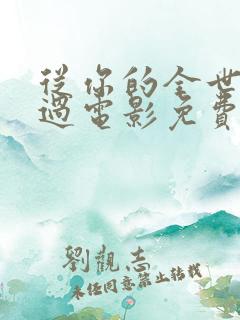 從你的全世
過電影免費
劉觀志
未經同意禁止轉載